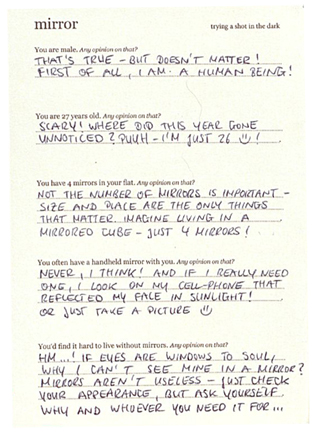 mirror
trying a shot in the dark
You are male. Any opinion on that?
THAT'S TRUE - BUT DOESN'T MATTER!
FIRST OF ALL, I AM A HUMAN BEING!
You are 27 years old. Any opinion on that?
SCARY! WHERE DID THIS YEAR GONE
UNNOTICED? PUUH - I'M JUST 26 ☺!
You have 4 mirrors in your flat. Any opinion on that?
NOT THE NUMBER OF MIRRORS IS IMPORTANT -
SIZE AND PLACE ARE THE ONLY THINGS
THAT MATTER. IMAGINE LIVING IN A
MIRRORED CUBE - JUST 4 MIRRORS!
You often have a handheld mirror with you. Any opinion on that?
NEVER, I THINK! AND IF I REALLY NEED
ONE, I LOOK ON MY CELL-PHONE THAT
REFLECTED MY FACE IN SUNLIGHT!
OR JUST TAKE A PICTURE ☺
You'd find it hard to live without mirrors. Any opinion on that?
HM...! IF EYES ARE WINDOWS TO SOUL,
WHY I CAN'T SEE MINE IN A MIRROR?
MIRRORS AREN'T USELESS - JUST CHECK
YOUR APPEARANCE, BUT ASK YOURSELF
WHY AND WHOEVER YOU NEED IT FOR...